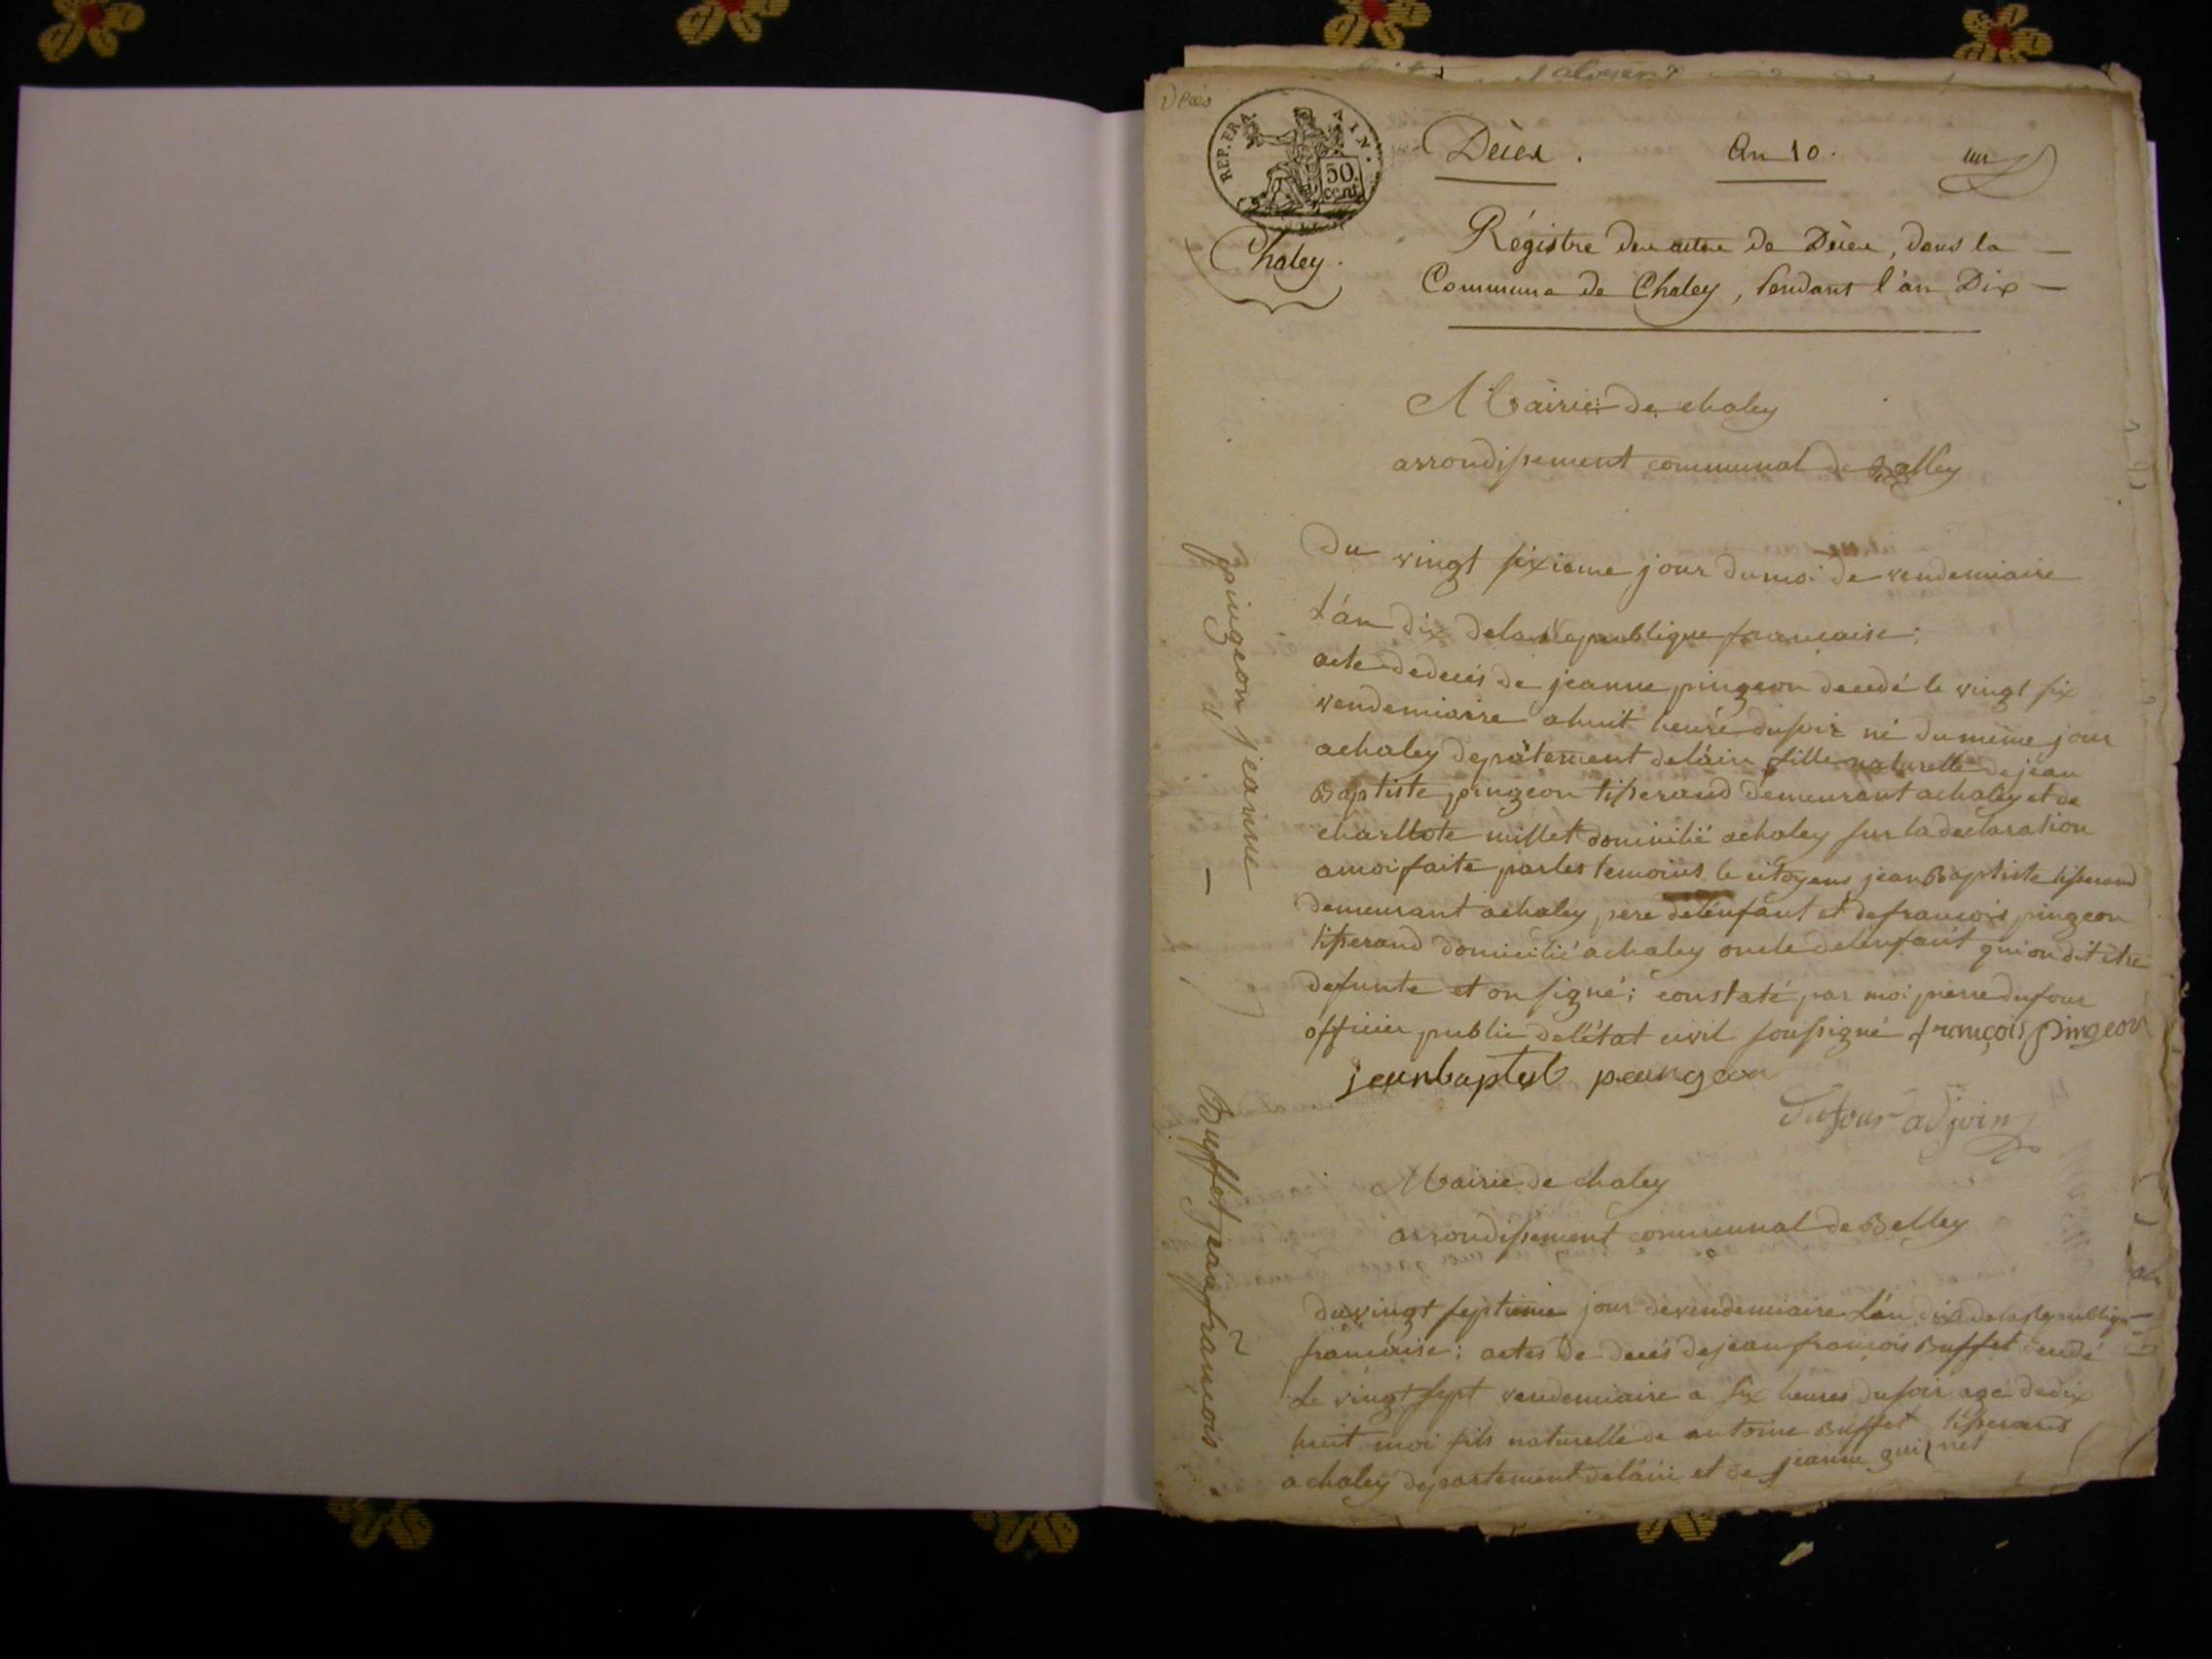 Décès
REP. FRA. AIN.
50 cent
Décès. An 10. un
Chaley.
Régistre des actes de Décès, dans la
Commune de Chaley, Pendant l'an Dix
Mairie de chaley
arrondissement communal de Belley
pingeon jeanne
Du vingt sixieme jour du moi de vendemiaire
L'án dix de la Republique francaise;
acte de decés de jeanne pingeon decedé le vingt six
vendemiaire a huit heure du soir né du même jour
a chaley depratement de láin fille naturelle de jean
Baptiste pingeon tisserand demeurant a chaley et de
charllote millet domicilié a chaley sur la declaration
a moi faite par les temoins le citoyens jean Baptiste tisserand
demeurant a chaley pere delénfant et de francois pingeon
tisserand domicilié a chaley oncle delenfant qui on dit être
defunte et on signé; constaté par moi pierre dufour
officier public delétat civil soussigné françois pingeon
jeanbaptist peungeon
Dufour adjoin
Buffet jean francois
Mairie de chaley
arrondissement communal de Belley
du vingt septieme jour de vendemiaire L'án dix de la Republique
francáise: actes de decés de jean francois Buffet decedé
Le vingt sept vendemiaire a six heures du soir agé de dix
huit moi fils naturelle de antoine Buffet tisserand
a chaley departement deláin et de jeanne guinet